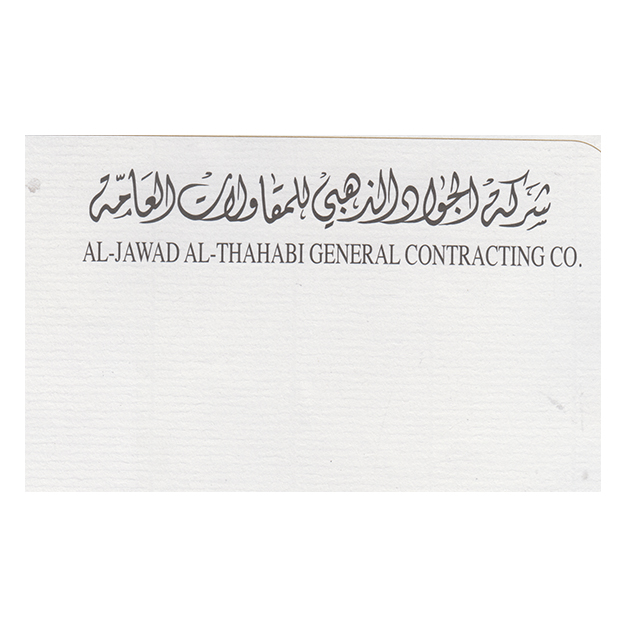 شركة الجواد الذهبي للمقاولات العامّة
AL-JAWAD AL-THAHABI GENERAL CONTRACTING CO.